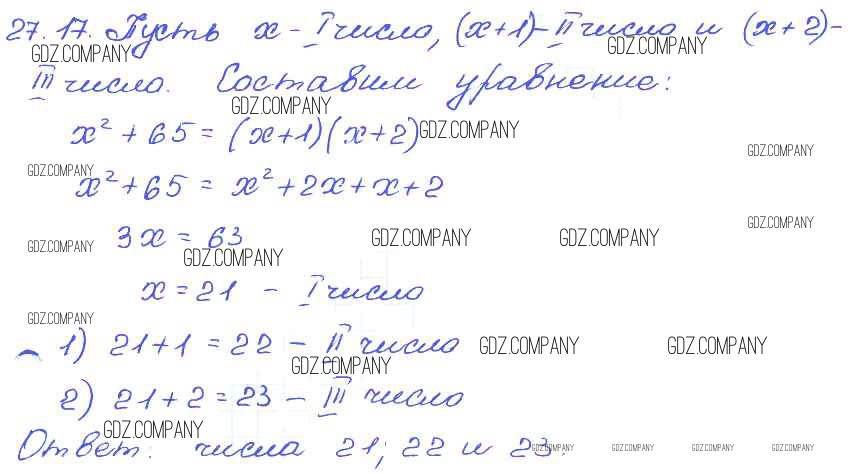 27.17. Пусть x - I число, (x+1) - II число и (x+2) -
GDZ.COMPANY GDZ.COMPANY
III число. Составим уравнение:
GDZ.COMPANY
x² + 65 = (x+1)(x+2) GDZ.COMPANY
GDZ.COMPANY
GDZ.COMPANY
x² + 65 = x² + 2x + x + 2
GDZ.COMPANY
GDZ.COMPANY 3x = 63 GDZ.COMPANY GDZ.COMPANY
GDZ.COMPANY
x = 21 - I число
GDZ.COMPANY
1) 21 + 1 = 22 - II число GDZ.COMPANY GDZ.COMPANY
GDZ.COMPANY
2) 21 + 2 = 23 - III число
GDZ.COMPANY
Ответ: числа 21; 22 и 23. GDZ.COMPANY GDZ.COMPANY GDZ.COMPANY GDZ.COMPANY